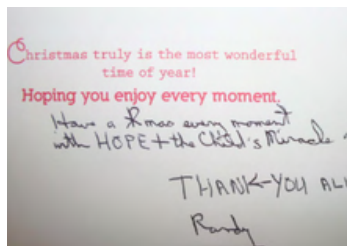 Christmas truly is the most wonderful
time of year!
Hoping you enjoy every moment.
Have a Xmas every moment
with HOPE + the Child's Miracle
THANK-YOU ALL
Randy